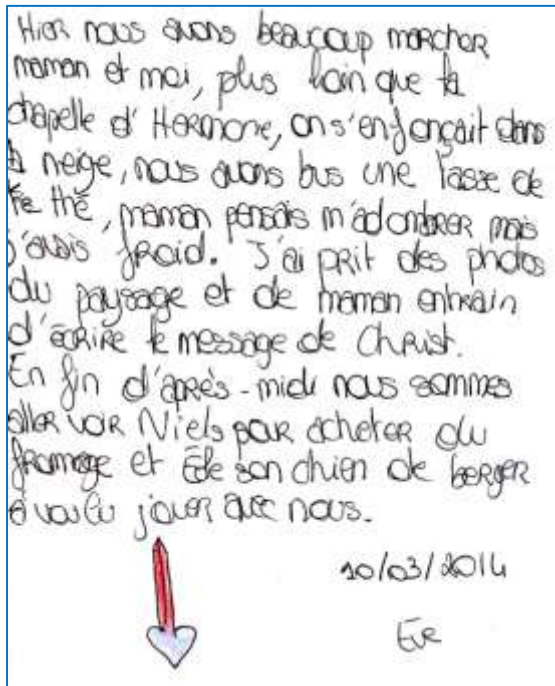 Hier nous avons beaucoup marcher
maman et moi, plus loin que la
chapelle d'Hermone, on s'enfonçait dans
la neige, nous avons bus une tasse de
thé, maman pensais m'adombrer mais
j'avais froid. J'ai prit des photos
du paysage et de maman entrain
d'écrire le message de Christ.
En fin d'après-midi nous sommes
aller voir Niels pour acheter du
fromage et son chien de berger
à voulu jouer avec nous.
10/03/2014